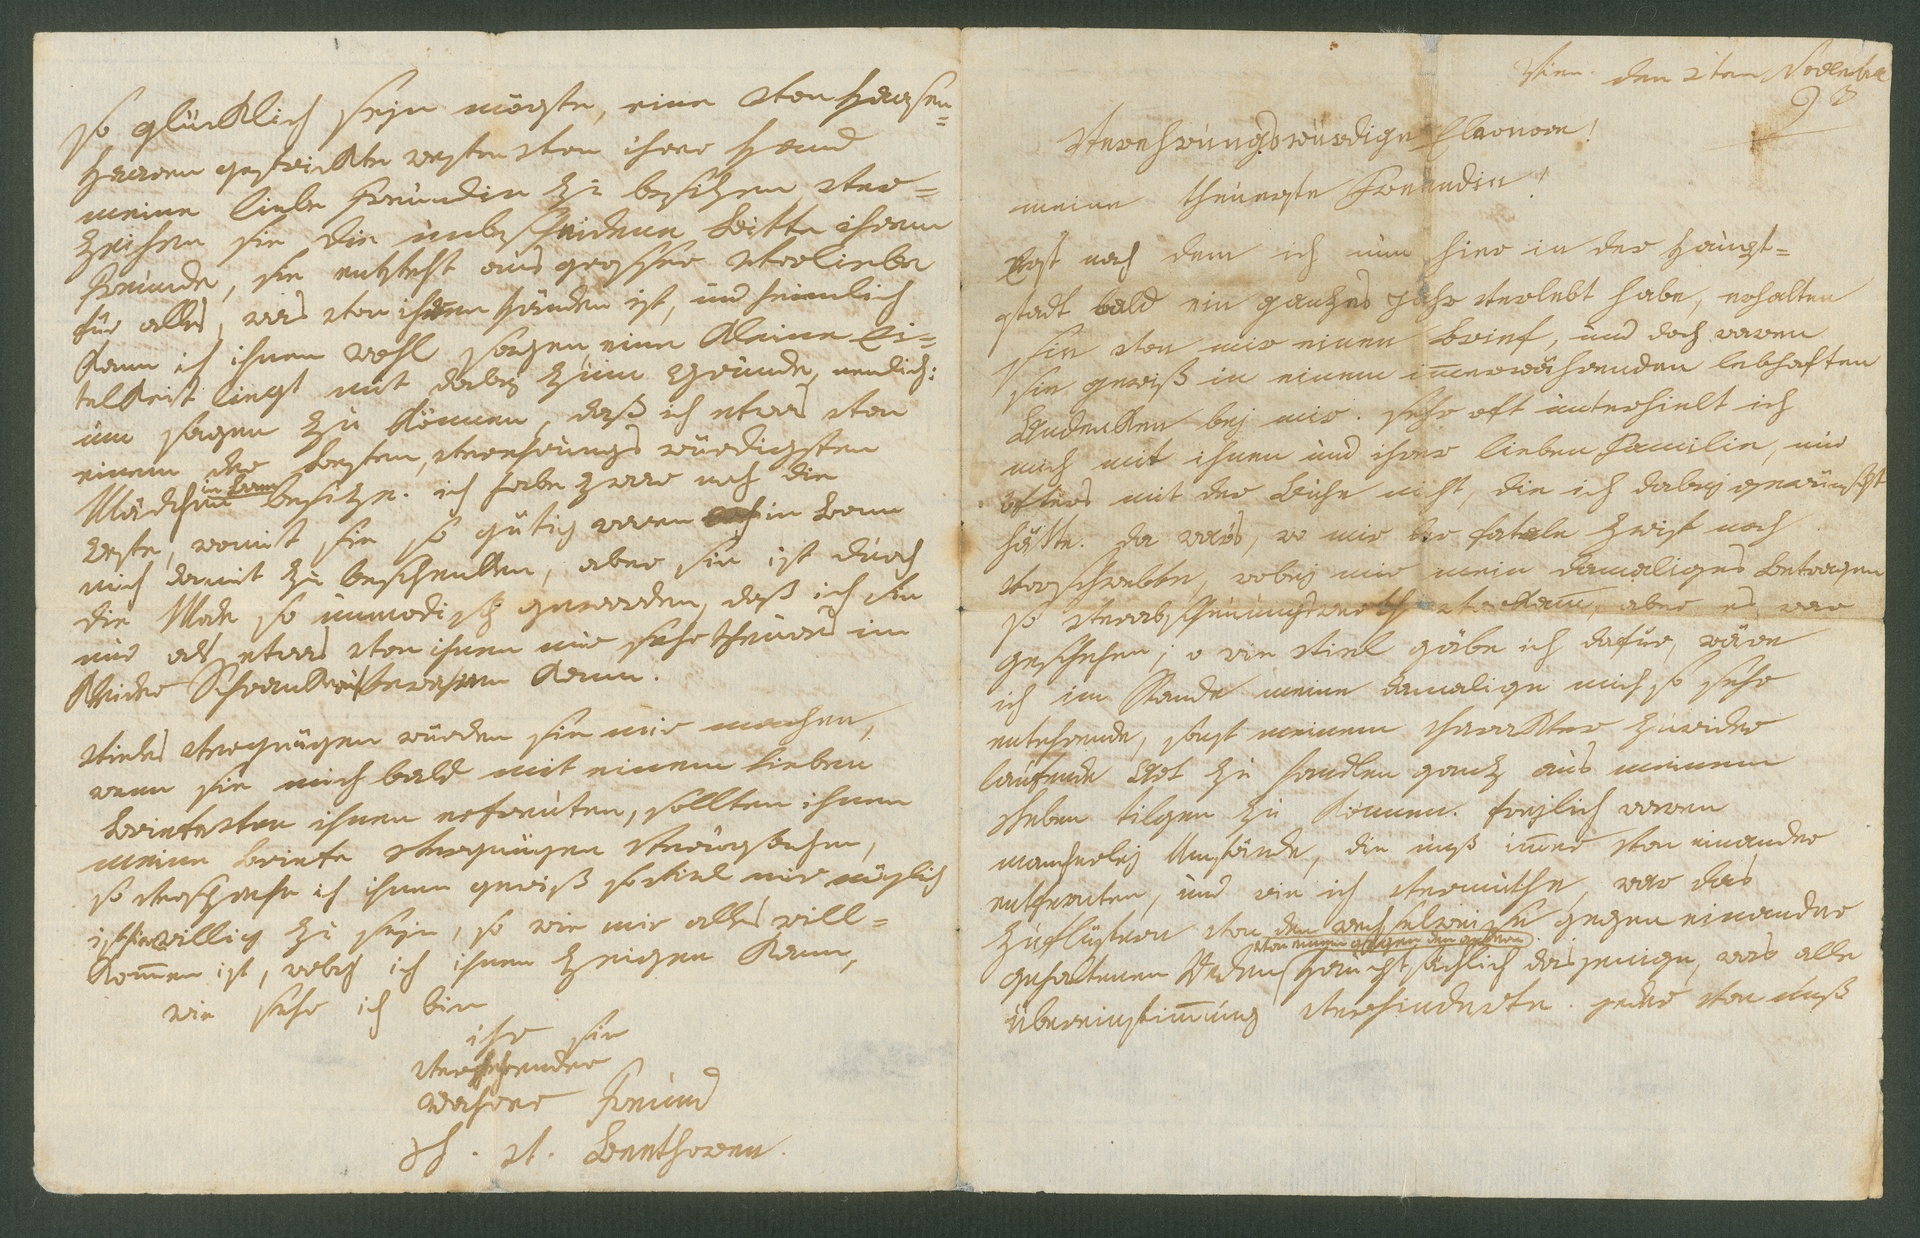 Vien. den 2ten Novemb.
93
Verehrungswürdige Eleonore!
meine theuerste Freundin!
Erst nach dem ich nun hier in der Haupt=
stadt bald ein ganzes Jahr verlebt habe, erhalten
sie von mir einen Brief, und doch waren
sie gewiß in einem im̅erwährenden lebhaften
Andenken bej mir. sehr oft unterhielt ich
mich mit ihnen und ihrer lieben Familie, nur
öfters mit der Ruhe nicht, die ich dabej gewünscht
hätte. da wars, wo mir der fatale Zwist noch
vorschwebte, wobej mir mein damaliges Betragen
so verabscheuungswerth vorkam, aber es war
geschehen; o wie viel gäbe ich dafür, wäre
ich im Stande meine damalige mich so sehr
entehrende, sonst meinem charakter zuwider
laufende Art zu handlen ganz aus meinem
Leben tilgen zu können. frejlich waren
mancherlej Umstände, die unß im̅er von einander
entfernten, und wie ich vermuthe, war das
Zuflüstern von den wechselweise gegen einander
von einem gegen den andern
gehaltenen Reden hauptsächlich dasjenige, was alle
übereinstim̅ung verhinderte. jeder von unß
so glücklich sejn mögte, eine von Haasen=
Haaren gestrickte weste von ihrer Hand
meine liebe Freundin zu besitzen. ver=
zeihen sie die unbescheidene Bitte ihrem
Freunde, sie entsteht aus grosser vorliebe
für alles, was von ihren händen ist, und heimlich
kann ich ihnen wohl sagen, eine kleine Ei=
telkeit liegt mit dabej zum Grunde, nemlich:
um sagen zu können, daß ich etwas von
einem der Besten, verehrungswürdigsten
in Bonn
Mädchen besitze. ich habe zwar noch die
Erste, womit sie so gütig waren in Bonn
mich damit zu beschenken, aber sie ist durch
die Mode so unmodisch geworden, daß ich sie
nur als etwas von ihnen mir sehr theures im
Kleider Schrank bewahren kann.
vieles vergnügen würden sie mir machen,
wenn sie mich bald mit einem lieben
Brief von ihnen erfreuten, sollten ihnen
meine Briefe vergnügen verursachen,
so verspreche ich ihnen gewiß so viel mir möglich
ist hierin willig zu sejn, so wie mir alles will=
kom̅en ist, wobej ich ihnen zeigen kann,
wie sehr ich bin
ihr sie
verehrender
wahrer Freund
L. v. Beethowen.